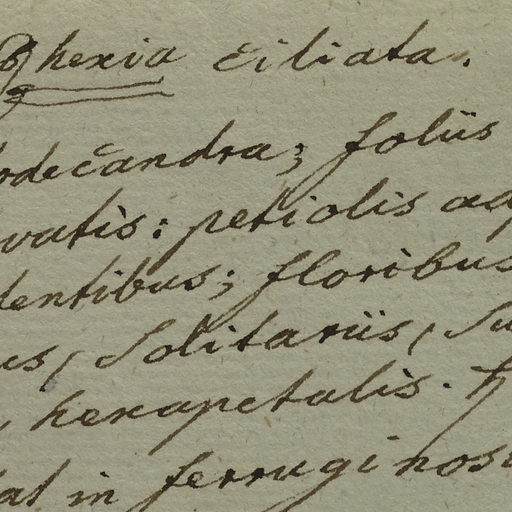 Rhexia ciliata.
odecandra; foliis
vatis: petiolis ad
dentibus; floribus
us, Solitariis, Su
hexapetalis. ♄
at in ferruginos